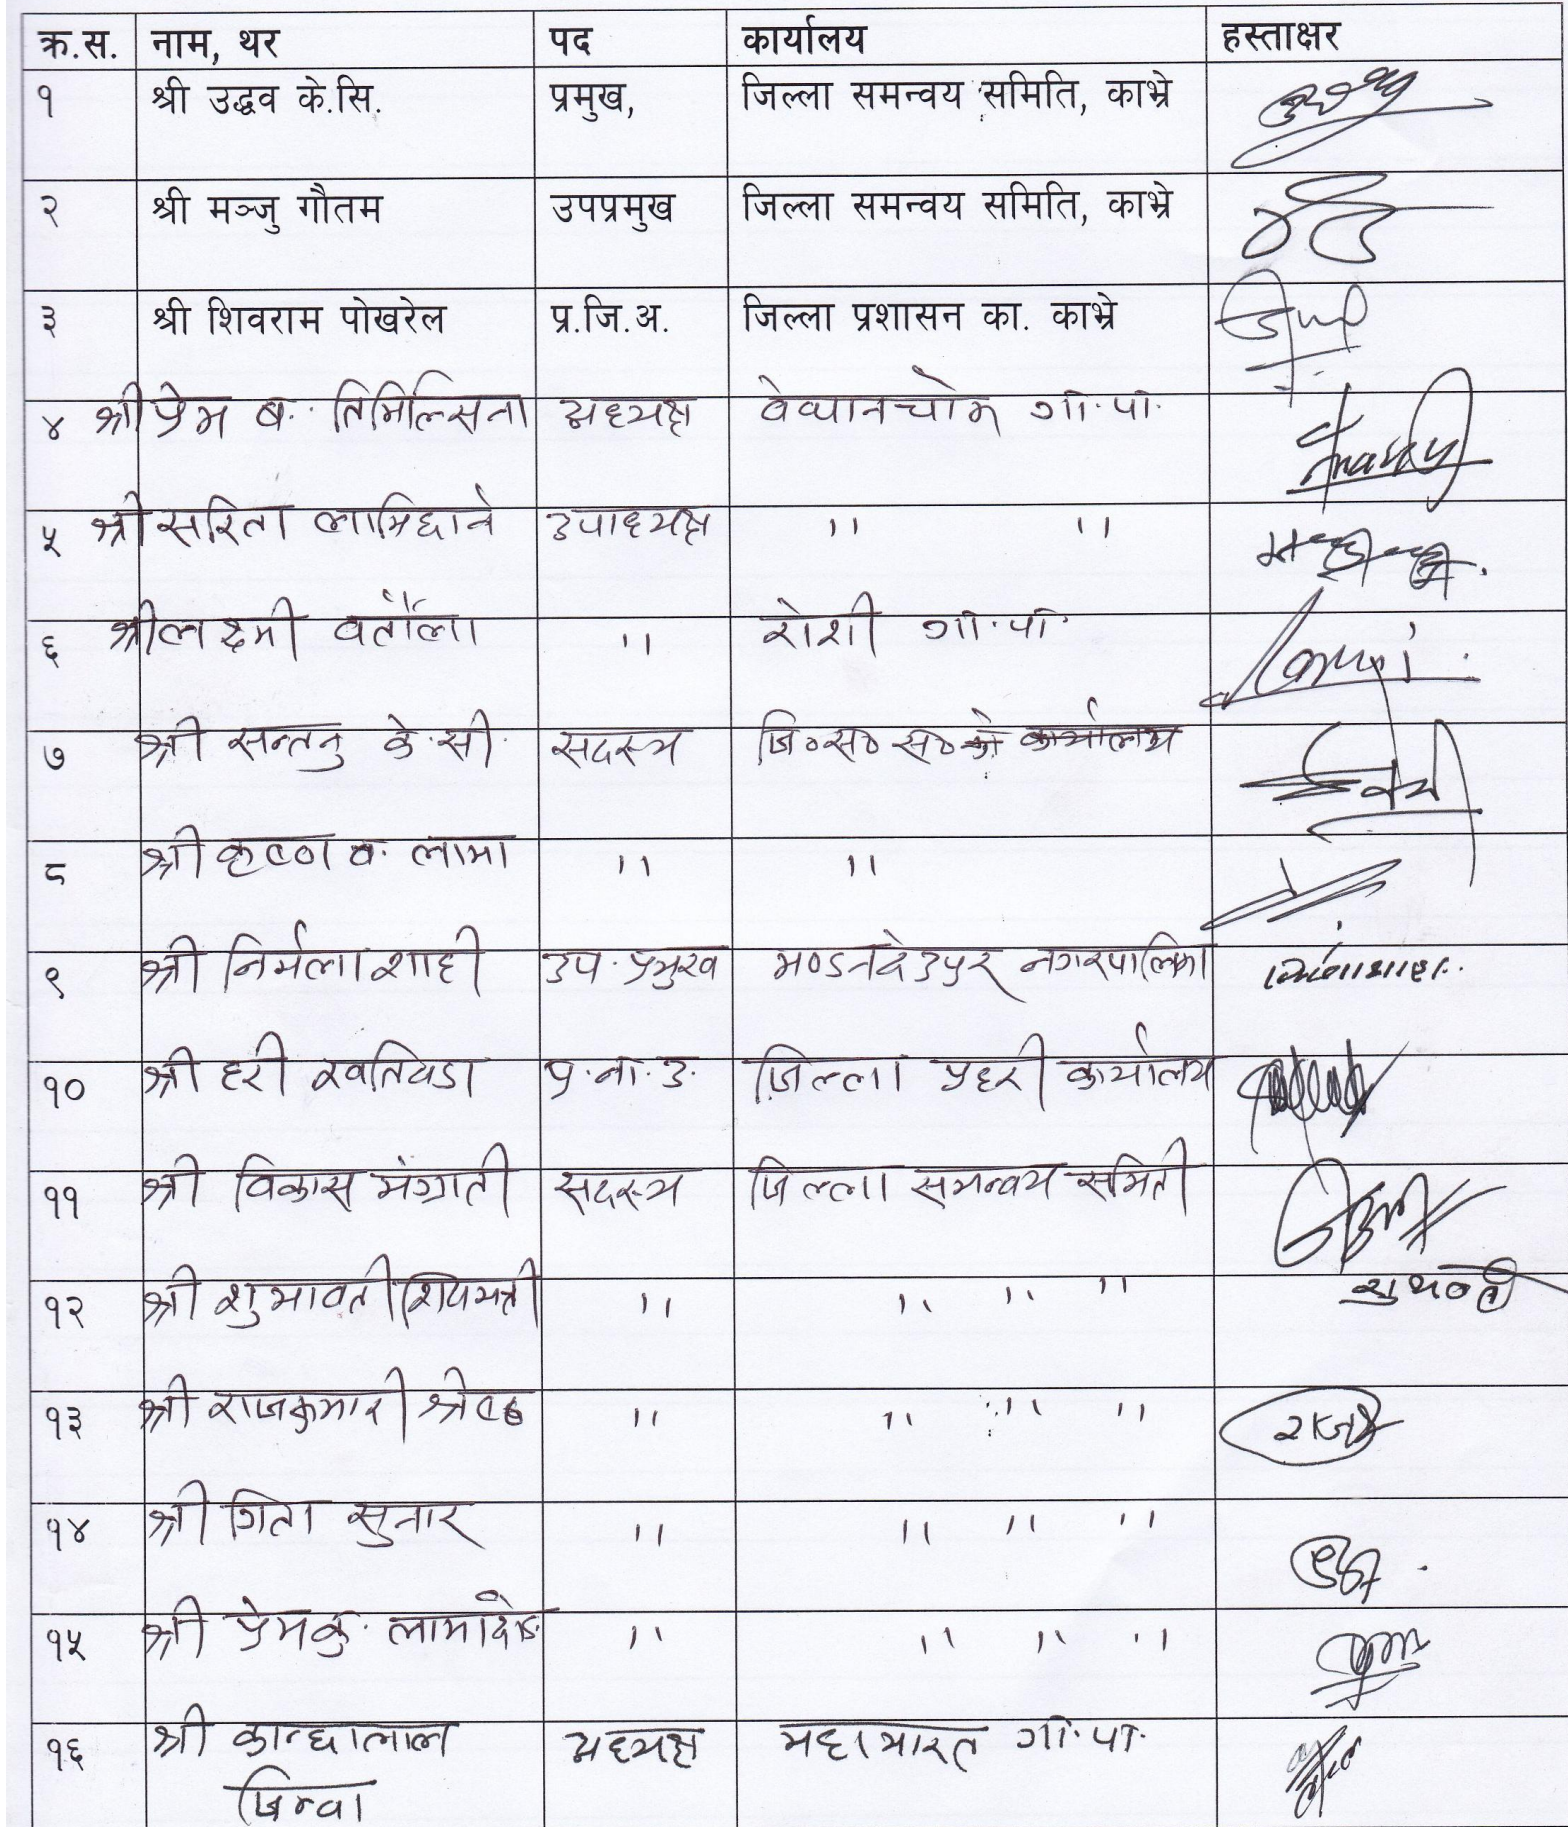 क्र.स. नाम, थर पद कार्यालय हस्ताक्षर
१ श्री उद्धव के.सि. प्रमुख, जिल्ला समन्वय समिति, काभ्रे
२ श्री मञ्जु गौतम उपप्रमुख जिल्ला समन्वय समिति, काभ्रे
३ श्री शिवराम पोखरेल प्र.जि.अ. जिल्ला प्रशासन का. काभ्रे
४ श्री प्रेम ब. तिमिल्सिना अध्यक्ष गा.पा.
५ श्री सरिता लामिछाने उपाध्यक्ष " "
६ श्री लक्ष्मी बतौला " रोशी गा.पा.
७ श्री सन्तनु के.सी. सदस्य जि०स० स०को कार्यालय
८ श्री कृष्ण ब. लामा " "
९ श्री निर्मला शाही उप.प्रमुख मण्डनदेउपुर नगरपालिका
१० श्री हरी खतिवडा प्र.ना.उ. जिल्ला प्रहरी कार्यालय
११ श्री विकास मंग्राती सदस्य जिल्ला समन्वय समिती
१२ श्री शुभावती " " " "
१३ श्री राजकुमारी श्रेष्ठ " " " "
१४ श्री गिता सुनार " " " "
१५ श्री प्रेम कु. " " " "
१६ श्री कान्छालाल अध्यक्ष महाभारत गा.पा.
जिम्बा